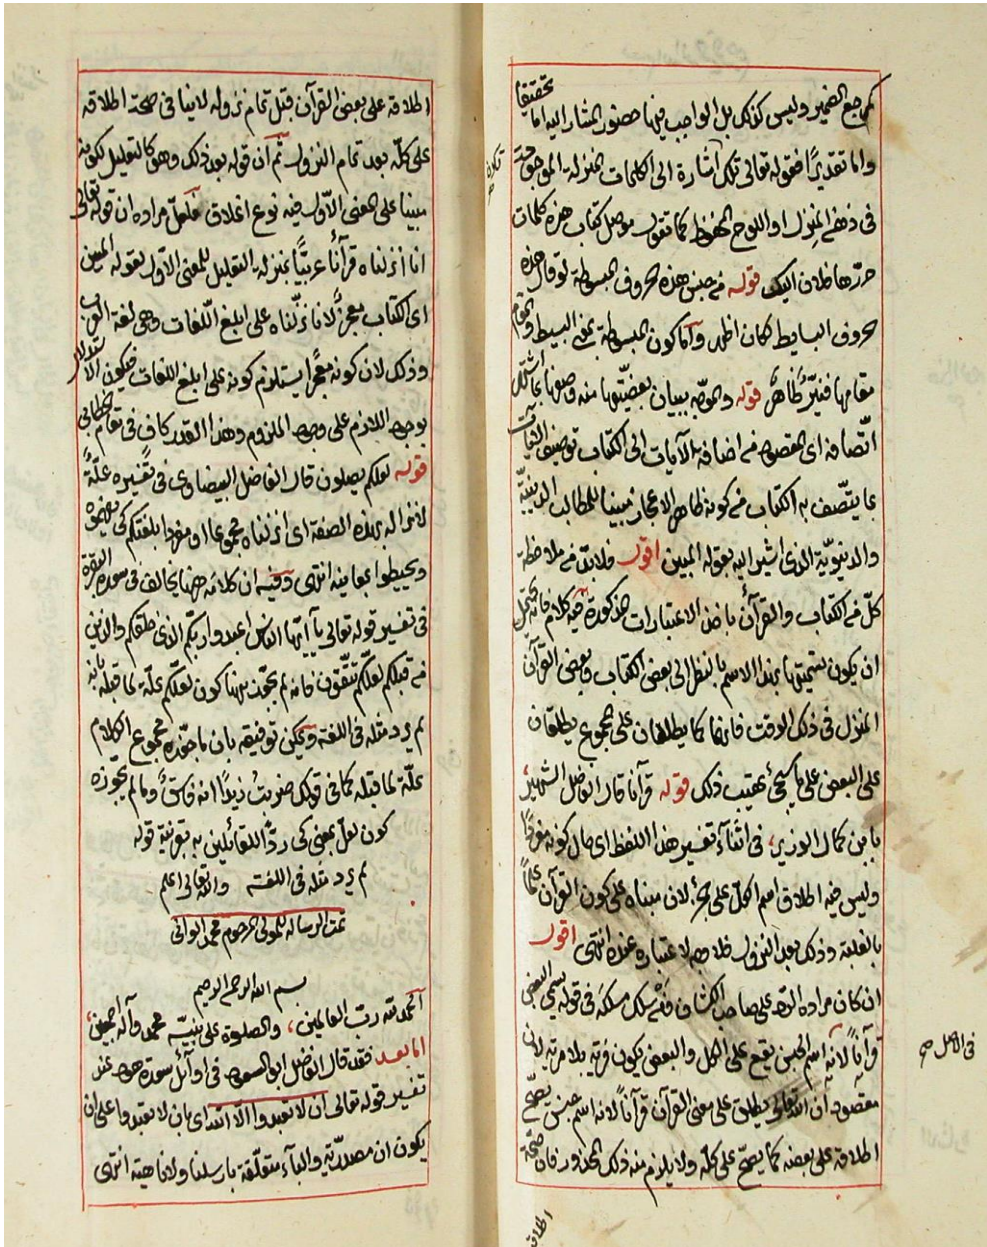 كمرجع الضمير وليس كذلك بل الواجب فيها حضور المشار اليه اما تحقيقا
واما تقديرًا فقوله تعالى تلك اشارة الى الكلمات بمنزلة الموجودة
في ذهن المنزل او اللوح المحفوظ كما تقول موصل كتاب هذه كلمات
حررها فلان اليك قوله من جنس هذه الحروف المبسوطة لو قال هذه
حروف البسايط لكان اظهر واما كون المبسوطة بمعنى البسيط
مقامها فغير ظاهر قوله والتوصيه ببيان بعضيتها منه وصفها بما اشتمل
اتصافه اى المقصود من اضافة الآيات الى الكتاب توصيف الآيات
بما يتصف به الكتاب من كونه ظاهر الاعجاز مبينا للمطالب الدينية
والدنيوية الذى اشير اليه بقوله المبين اقول فلابد من ملاحظة
كل من الكتاب والقرآن باخذ الاعتبارات مذكورة فيه كلام فانه يحتمل
ان يكون تسميتها بهذا الاسم بالنظر الى بعض الكتاب وبعض القرآن
المنزل في ذلك الوقت فانهما كما يطلقان على المجموع يطلقان
على البعض على ما سيجئ بعقيب ذلك قوله قرآنا قال الفاضل الشهير
بابن كمال الوزير في اثناء تفسير هذا اللفظ اى حال كونه مقروًا
وليس فيه اطلاق اسم الكل على الجزء لان مبناه على كون القرآن علمًا
بالغلبة وذلك بعد النزول فلا وجه لاعتباره عنده انتهى اقول
ان كان مراده الرد على صاحب الكشاف فمن سلك مسلكه في قوله سمى البعض
قرآنًا لانه اسم الجنس يقع على الكل والبعض يكون فرية بلا مرية لان
مقصوده ان الله تعالى يطلق على معنى القرآن قرآنًا لانه اسم جنس يصح
اطلاقه على بعضه كما يصح على كله ولا يلزم منه ذلك المحذور فان صحة
اطلاقه
في الاصل صح
اطلاقه على بعض القرآن قبل تمام نزوله لا ينافى صحة اطلاقه
على كله بعد تمام النزول ثم ان قوله بعد ذلك وهو كالتعليل لكونه
مبينا على المعنى الاول فيه نوع اغلاق فلعل مراده ان قوله تعالى
انا انزلناه قرآنًا عربيًا بمنزلة التعليل للمعنى الاول لقوله المبين
اى الكتاب معجز لانا نزلناه على ابلغ اللغات وهى لغة العرب
وذلك لان كونه معجزًا يستلزم كونه على ابلغ اللغات فيكون الاستدلال
بوجود اللازم على وجود الملزوم وهذا القدر كاف في مقام الخطابى
قوله لعلكم يصلون قال الفاضل البيضاوى في تفسيره علة
لانزاله بهذه الصفة اى انزلناه مجموعا او مقروا بلغتكم كى تفهموه
وتحيطوا بمعانيه انتهى وفيه ان كلامه ههنا يخالف في سورة البقرة
في تفسير قوله تعالى يا ايها الناس اعبدوا ربكم الذى خلقكم والذين
من قبلكم لعلكم تتقون فانه لم يجوز هنا كون لعلكم علة لما قبله بانه
لم يرد مثله في اللغة ويمكن توفيقه بان ما جوزه مجموع الكلام
علة لما قبله كما في قولك ضربت زيدًا انه فاسق وما لم يجوزه
كون لعل بمعنى كى ردًا للقائلين به بقرينة قوله
لم يرد مثله في اللغة والله تعالى اعلم
تمت الرسالة للمولى المرحوم محمد الوانى
بسم الله الرحمن الرحيم
الحمد لله رب العالمين، والصلوة على نبيه محمد وآله اجمعين،
اما بعد فقد قال الفاضل ابو السعود في اوائل سورة هود عند
تفسير قوله تعالى ان لا تعبدوا الا الله اى بان لا تعبدوا على ان
يكون ان مصدرية والباء متعلقة بارسلنا ولا ناهية انتهى